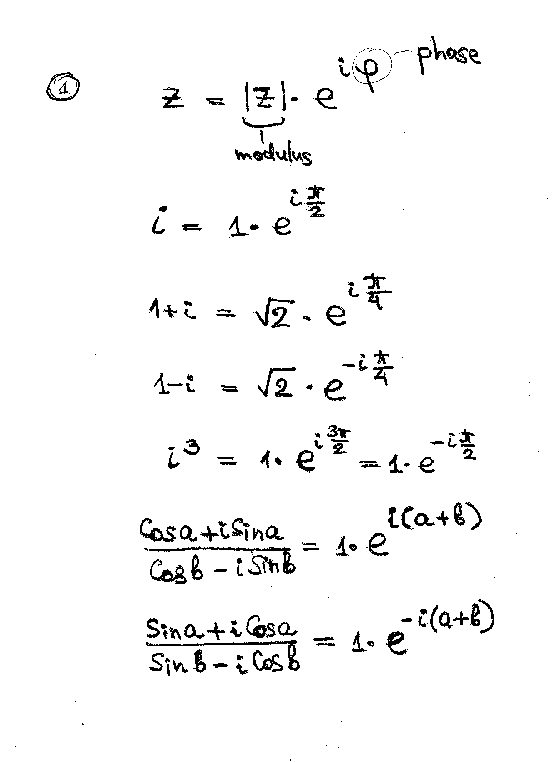 ① z = |z|· e^{iφ} phase
modulus
i = 1· e^{i π/2}
1+i = √2 · e^{i π/4}
1-i = √2 · e^{-i π/4}
i³ = 1· e^{i 3π/2} = 1· e^{-i π/2}
(Cos a + i Sin a)/(Cos b - i Sin b) = 1· e^{i(a+b)}
(Sin a + i Cos a)/(Sin b - i Cos b) = 1· e^{-i(a+b)}